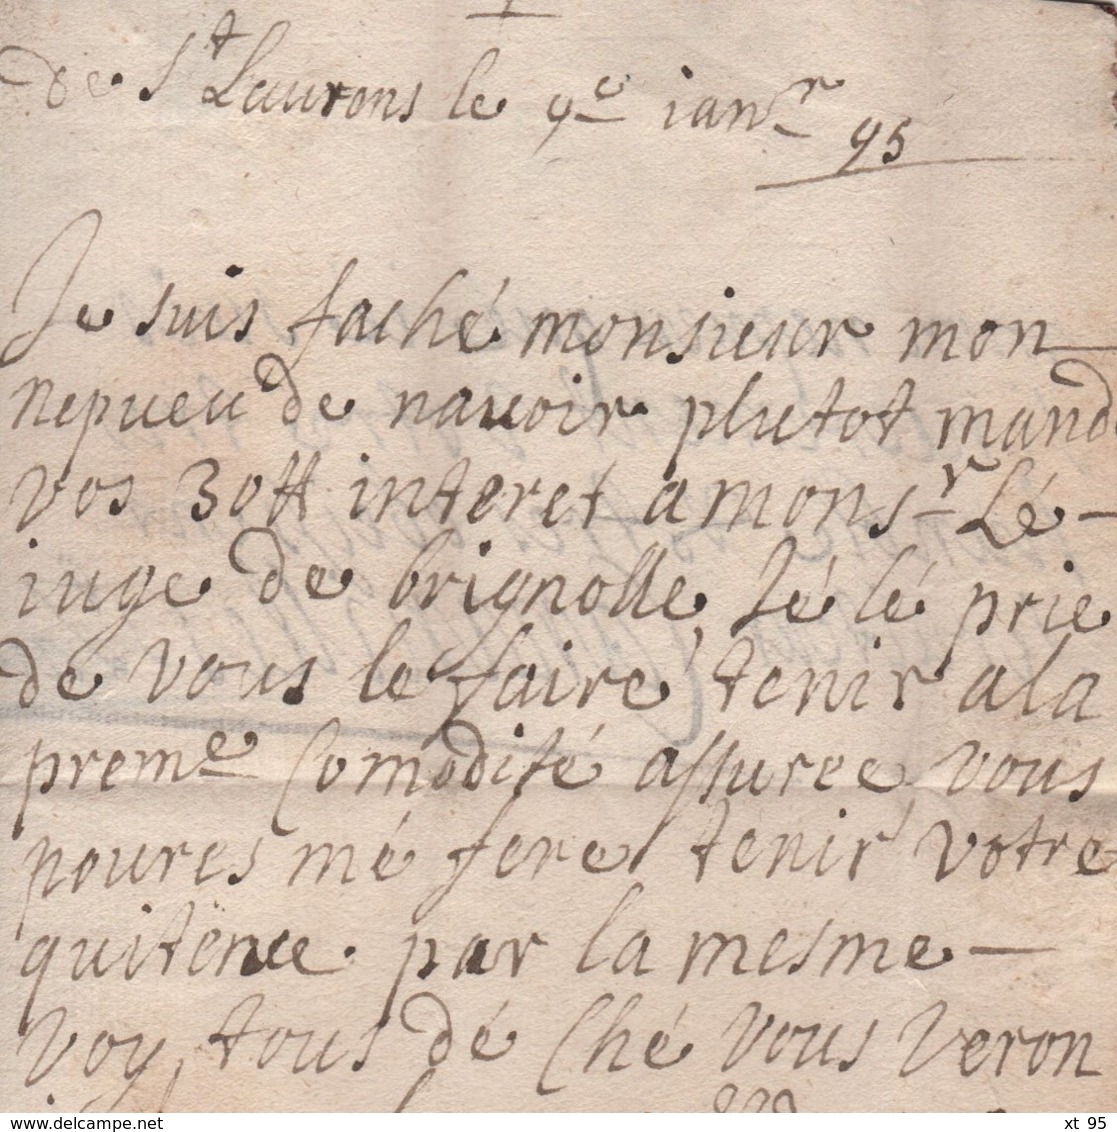 de St Laurons le 9e ianr 95
Je suis faché monsieur mon
nepueu de nauoir plutot mandé
vos 30tt interet a monsr Lé
iuge de brignolle, Jé lé prie
de vous le faire tenir a la
preme Comodité assuree, vous
poures mé fere tenir votre
quitence par la mesme
voy, tous dé Ché vous veron
xt 95